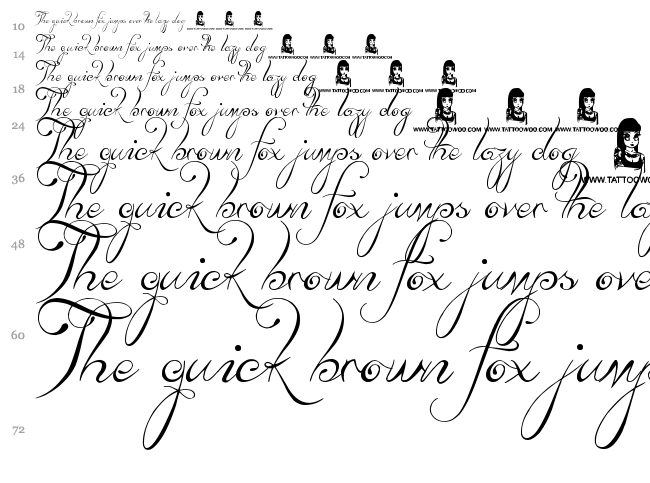 10 The quick brown fox jumps over the lazy dog WWW.TATTOOWOO.COM WWW.TATTOOWOO.COM WWW.TATTOOWOO.COM
14 The quick brown fox jumps over the lazy dog WWW.TATTOOWOO.COM WWW.TATTOOWOO.COM WWW.TATTOOWOO.COM
18 The quick brown fox jumps over the lazy dog WWW.TATTOOWOO.COM WWW.TATTOOWOO.COM WWW.TATTOOWOO.COM
24 The quick brown fox jumps over the lazy dog WWW.TATTOOWOO.COM WWW.TATTOOWOO.COM WWW.TATTOOWOO.COM
36 The quick brown fox jumps over the lazy dog WWW.TATTOOWO
48 The quick brown fox jumps over the la
60 The quick brown fox jumps ove
72 The quick brown fox jum